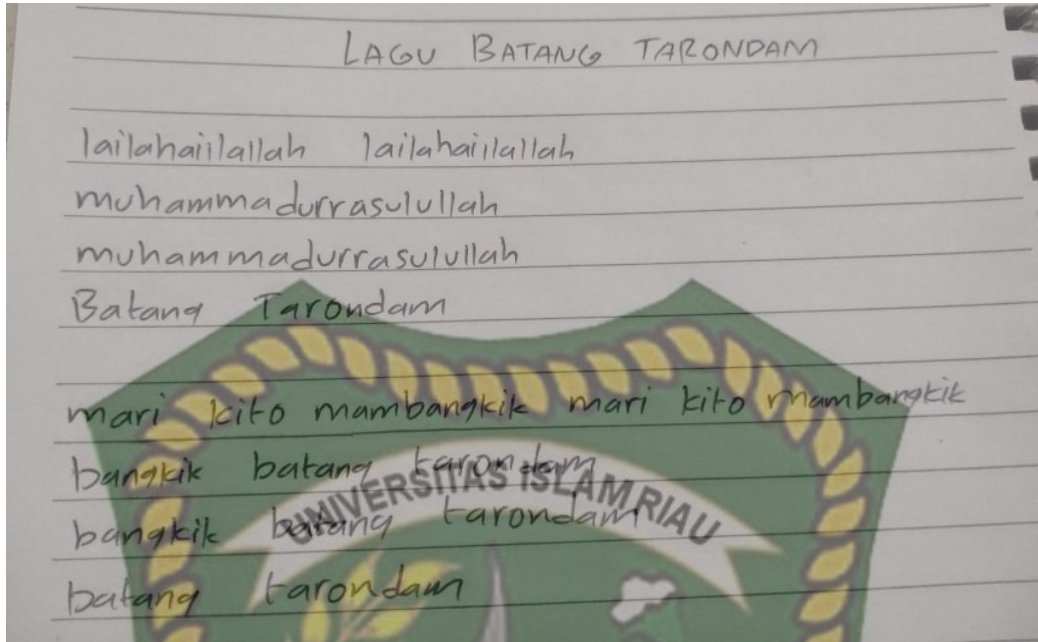 LAGU BATANG TARONDAM
lailahaiilallah lailahaiilallah
muhammadurrasulullah
muhammadurrasulullah
Batang Tarondam
mari kito mambangkik mari kito mambangkik
bangkik batang tarondam
bangkik batang tarondam
batang tarondam
UNIVERSITAS ISLAM RIAU